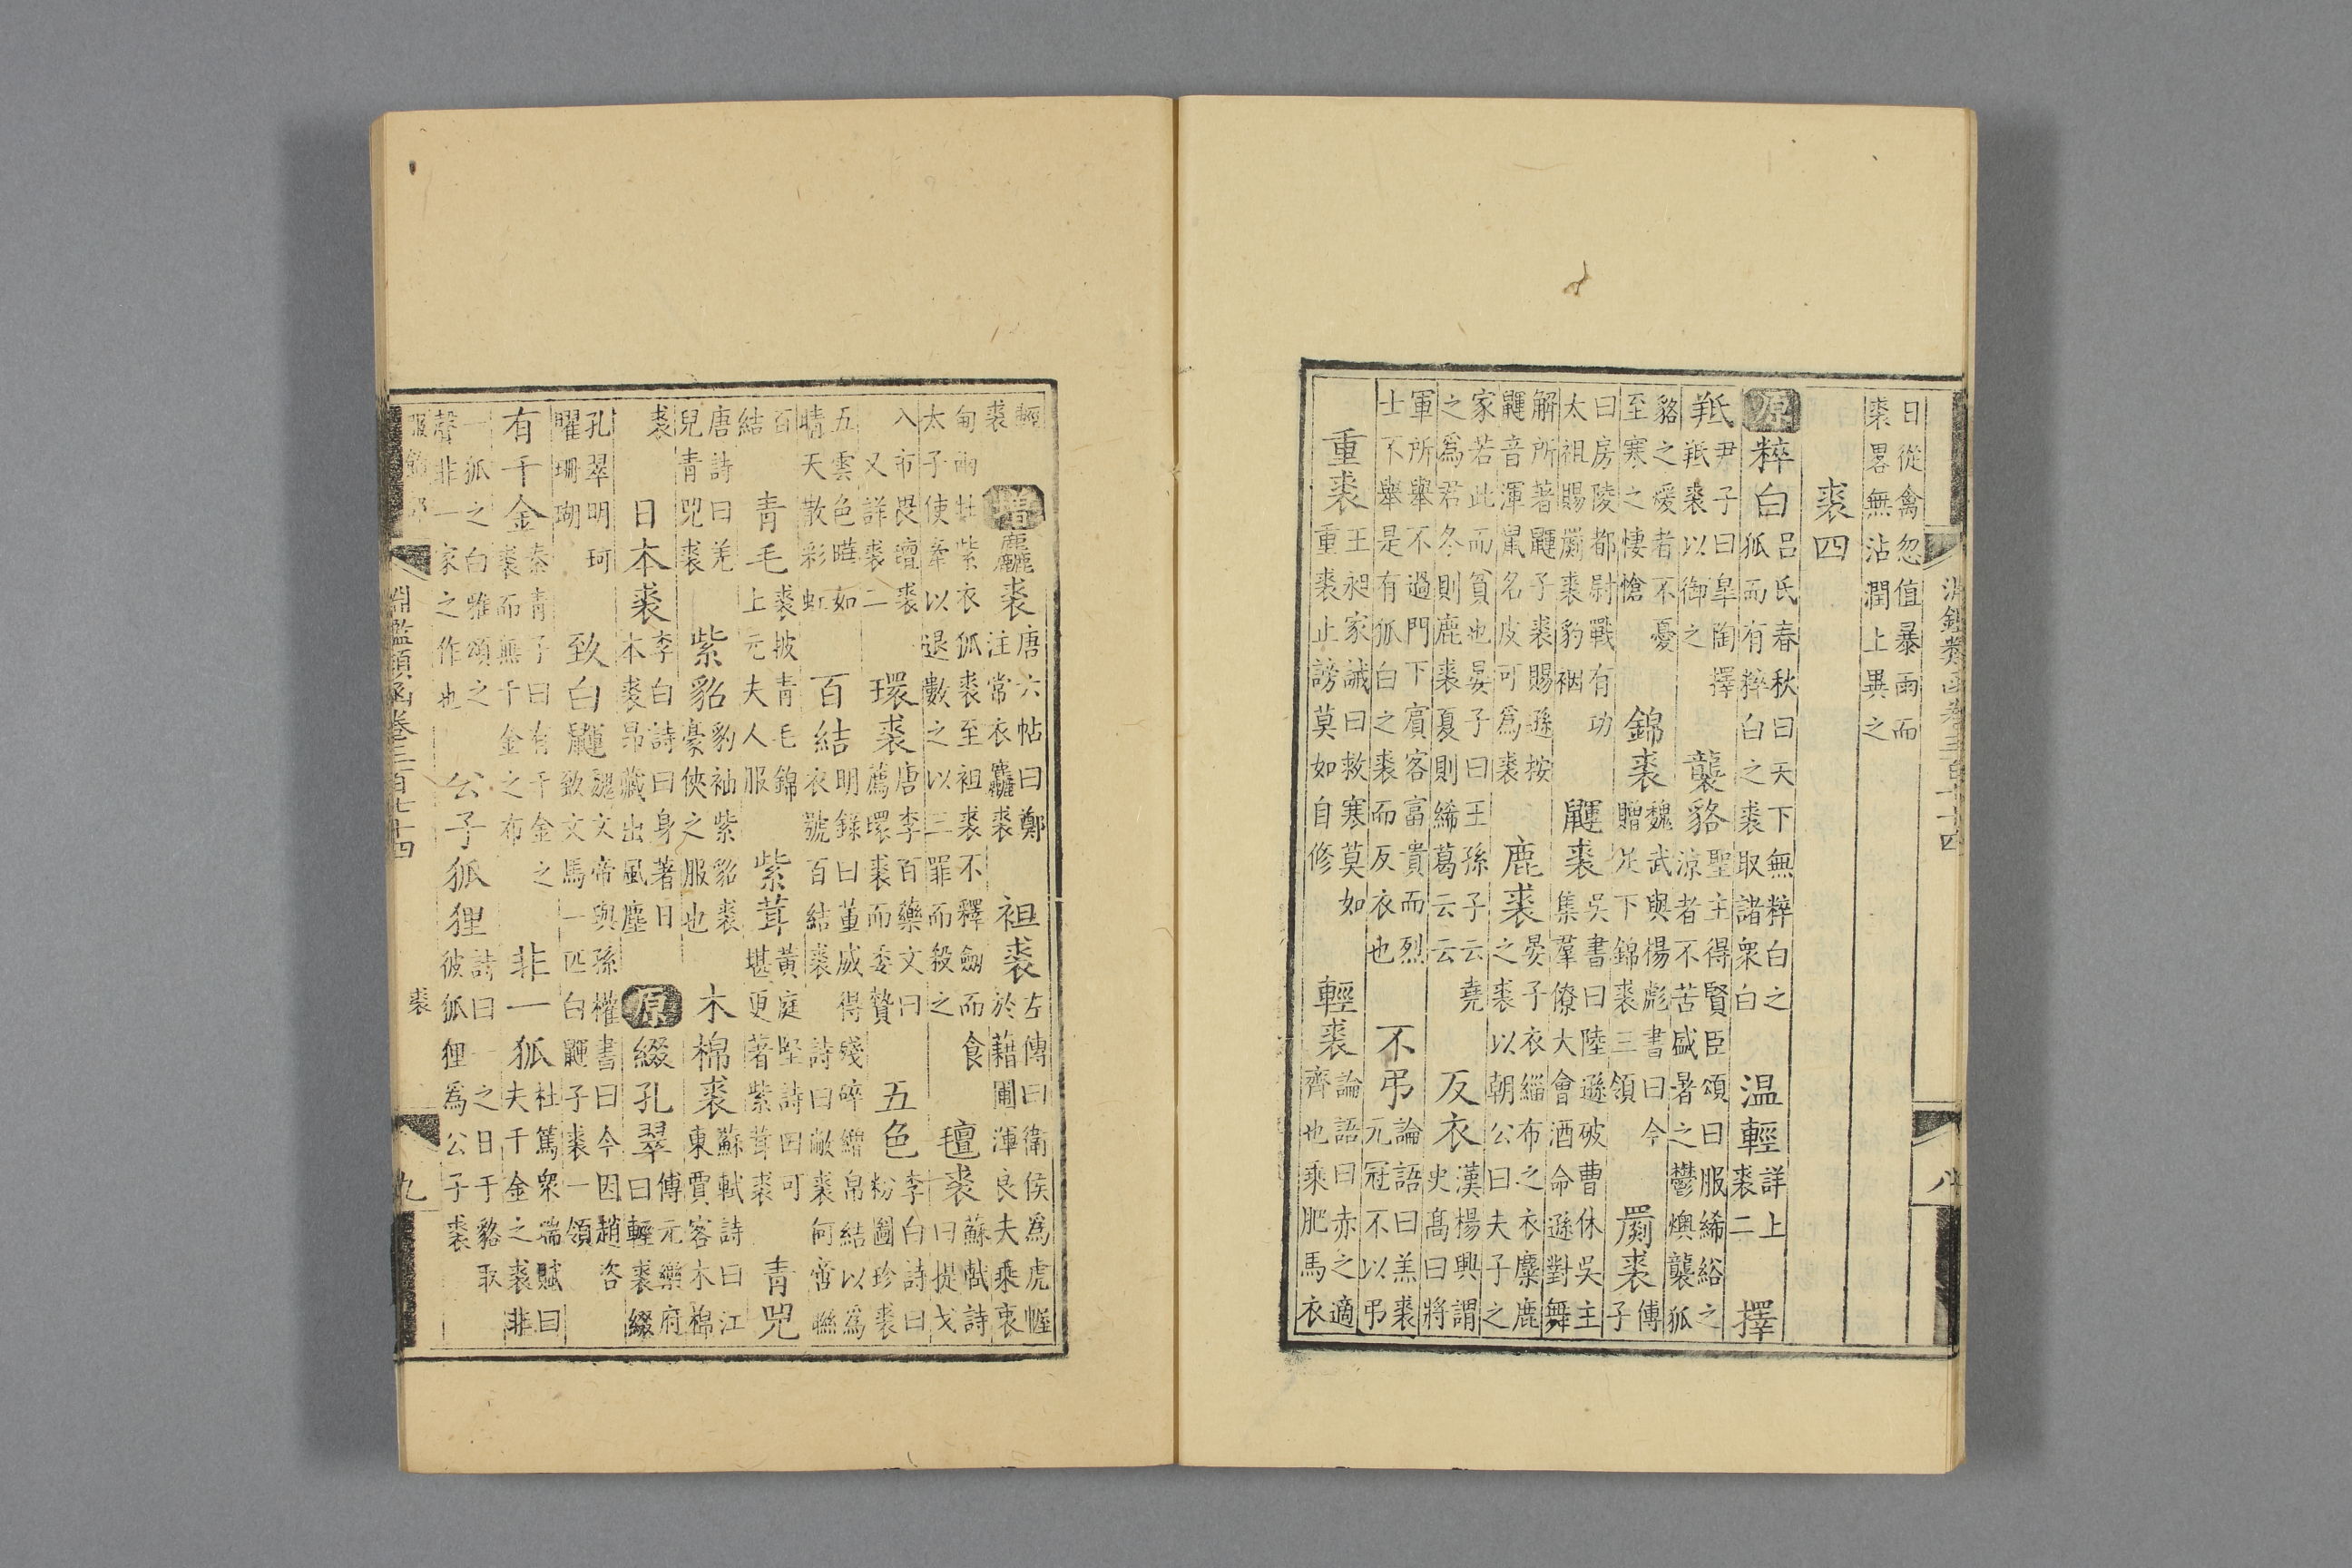 淵鑑類函卷三百七十四 八
日從禽忽值暴雨而
裘畧無沾潤上異之
裘四
原 粹白 呂氏春秋曰天下無粹白之
狐而有粹白之裘取諸衆白 温輕 詳上
裘二 擇
羝 尹子曰臯陶擇
羝裘以御之 襲貉 聖主得賢臣頌曰服絺綌之
涼者不苦盛暑之鬱燠襲狐
貉之煖者不憂
至寒之悽愴 錦裘 魏武與楊彪書曰今
贈足下錦裘三領 罽裘 傅
子
曰房陵都尉戰有功
太祖賜罽裘豹裀 鼲裘 吳書曰陸遜破曹休吳主
集羣僚大會酒命遜對舞
解所著鼲子裘賜遜按
鼲音渾鼠名皮可為裘 鹿裘 晏子衣緇布之衣麋鹿
之裘以朝公曰夫子之
家若此而貧也晏子曰王孫子云堯
之爲君冬則鹿裘夏則絺葛云云 反衣 漢楊興謂
史髙曰將
軍所舉不過門下賔客富貴而烈
士不舉是有狐白之裘而反衣也 不弔 論語曰羔裘
元冠不以弔
重裘 王昶家誡曰救寒莫如
重裘止謗莫如自修 輕裘 論語曰赤之適
齊也乘肥馬衣
輕
裘 增 麤裘 唐六帖曰鄭
注常衣麤裘 袒裘 左傳曰衛侯爲虎幄
於藉圃渾良夫乘衷
甸兩牡紫衣狐裘至袒裘不釋劒而食
太子使牽以退數之以三罪而殺之 氊裘 蘇軾詩
曰提戈
入市畏氊裘
又詳裘二 環裘 唐李百藥文曰
薦環裘而委贄 五色 李白詩曰
粉圖珍裘
五雲色曄如
晴天散彩虹 百結 明錄曰董威得殘碎繒帛結以爲
衣號百結裘 詩曰敝裘何啻聮
百
結 青毛 裘披青毛錦
上元夫人服 紫茸 黃庭堅詩曰可
堪更著紫茸裘 青兕
唐詩曰羌
兒青兕裘 紫貂 豹袖紫貂裘
豪俠之服也 木棉裘 蘇軾詩曰江
東賈客木棉
裘 日本裘 李白詩曰身著日
本裘昂藏出風塵 原 綴孔翠 傅元樂府
曰輕裘綴
孔翠明珂
曜珊瑚 致白鼲 魏文帝與孫權書曰今因趙咨
致文馬一匹白鼲子裘一領
有千金 秦青子曰有千金之
裘而無千金之布 非一狐 杜篤衆瑞賦曰
夫千金之裘非
一狐之白雅頌之
聲非一家之作也 公子狐狸 詩曰一之日于貉取
彼狐狸爲公子裘
服飾部 裘
淵鑑類函卷三百七十四 九